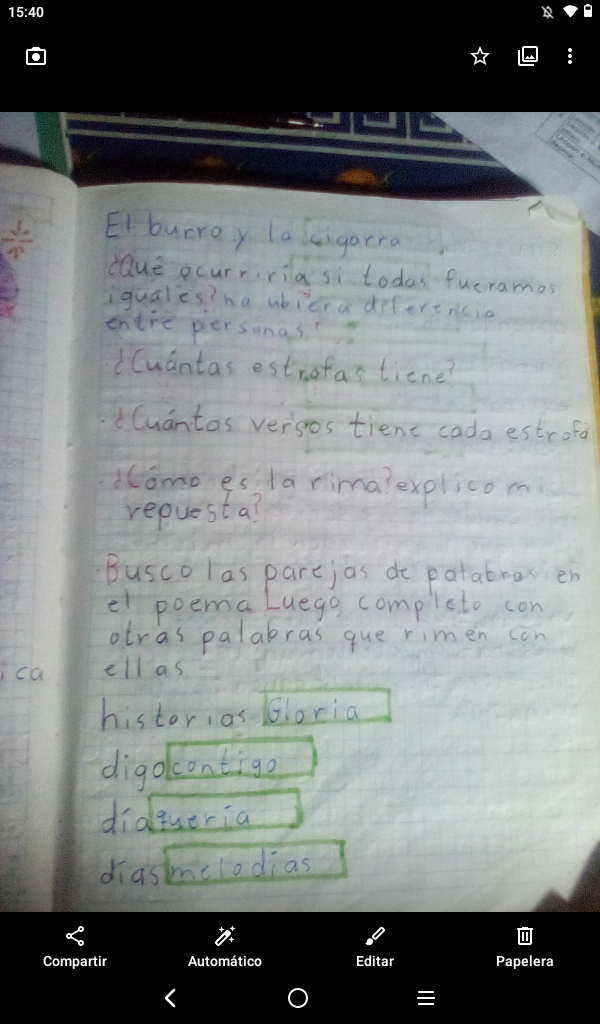 15:40
El burro y la cigarra
¿Qué ocurriría si todas fueramos
iguales? no ubiera diferencia
entre personas
¿Cuántas estrofas tiene?
¿Cuántos versos tiene cada estrofa
¿Cómo es la rima? explico mi
repuesta?
Busco las parejas de palabras en
el poema Luego, completo con
otras palabras que rimen con
ellas
ica
historias Gloria
digo contigo
día quería
días melodías
Compartir
Automático
Editar
Papelera